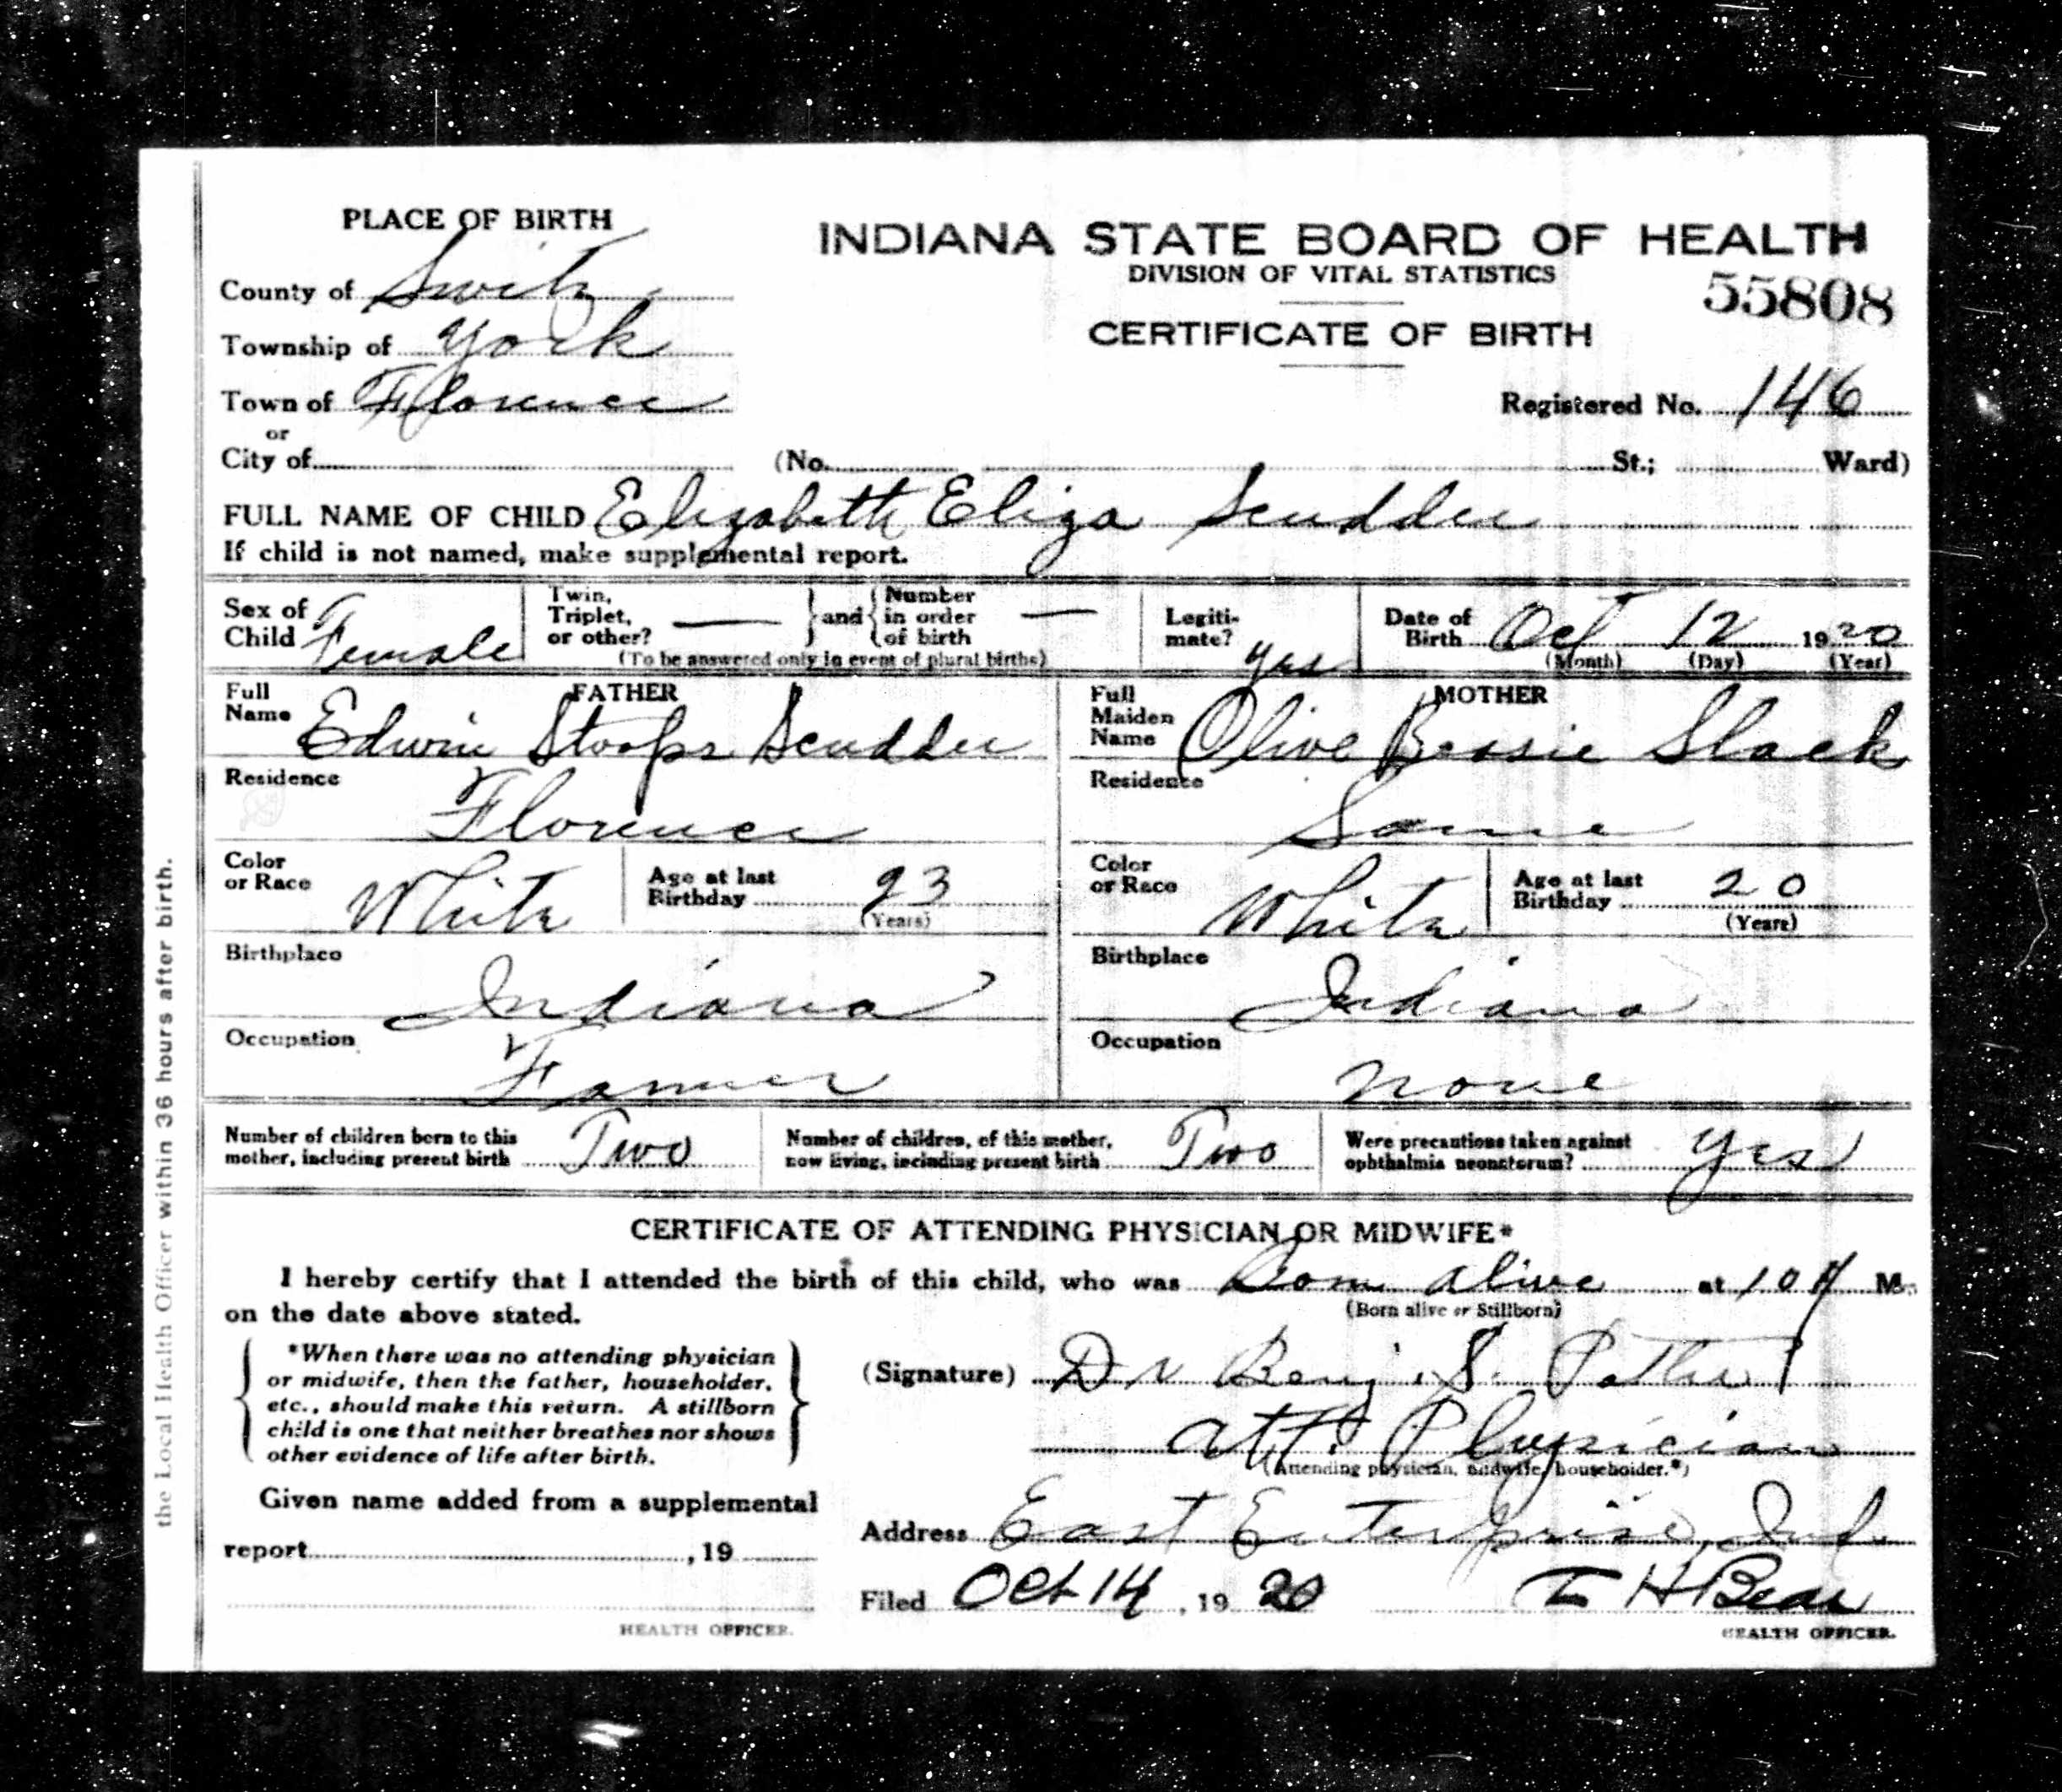 PLACE OF BIRTH
INDIANA STATE BOARD OF HEALTH
DIVISION OF VITAL STATISTICS
55808
County of Switz
CERTIFICATE OF BIRTH
Township of York
Town of Florence
Registered No. 146
or
City of (No. St.; Ward)
FULL NAME OF CHILD Elizabeth Eliza Scudder
If child is not named, make supplemental report.
Sex of Child Female
Twin, Triplet, or other? — and Number in order of birth —
(To be answered only in event of plural births)
Legiti-mate? yes
Date of Birth Oct 12 1920
(Month) (Day) (Year)
FATHER
Full Name Edwin Stoops Scudder
MOTHER
Full Maiden Name Olive Bessie Slack
Residence Florence
Residence Same
Color or Race White
Age at last Birthday 23
(Years)
Color or Race White
Age at last Birthday 20
(Years)
Birthplace Indiana
Birthplace Indiana
Occupation Farmer
Occupation none
Number of children born to this mother, including present birth Two
Number of children, of this mother, now living, including present birth Two
Were precautions taken against ophthalmia neonatorum? yes
CERTIFICATE OF ATTENDING PHYSICIAN OR MIDWIFE*
I hereby certify that I attended the birth of this child, who was Born alive at 10 M.
(Born alive or Stillborn)
on the date above stated.
*When there was no attending physician
or midwife, then the father, householder,
etc., should make this return. A stillborn
child is one that neither breathes nor shows
other evidence of life after birth.
(Signature) Dr Benj. S.
Att. Physician
(Attending physician, midwife, householder.*)
Given name added from a supplemental
report , 19
Address East Enterprise, Ind
Filed Oct 14, 1920 H Bear
HEALTH OFFICER.
HEALTH OFFICER.
the Local Health Officer within 36 hours after birth.